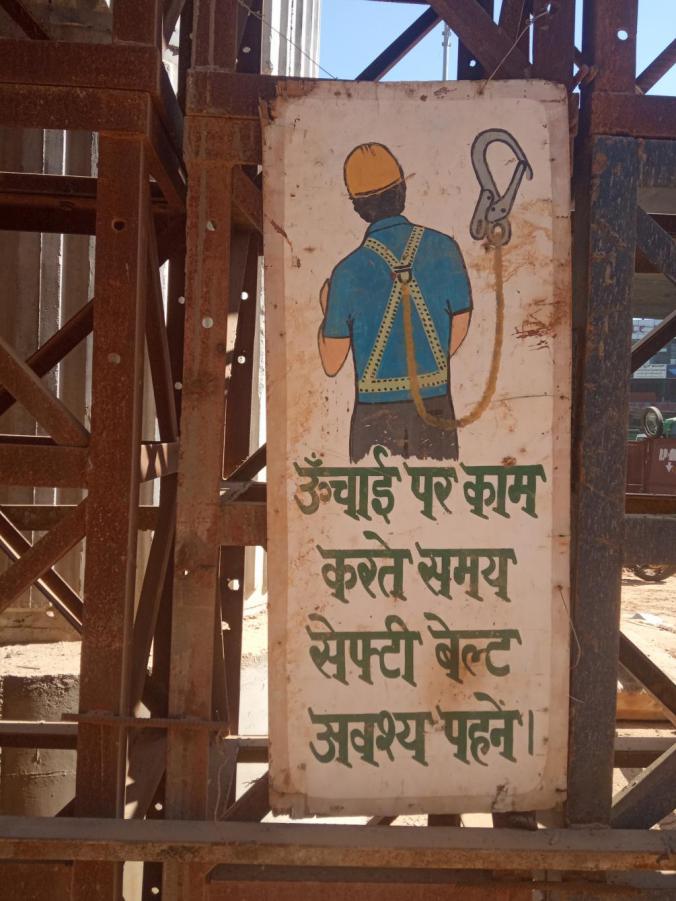 ऊँचाई पर काम
करते समय
सेफ्टी बेल्ट
अवश्य पहनें।